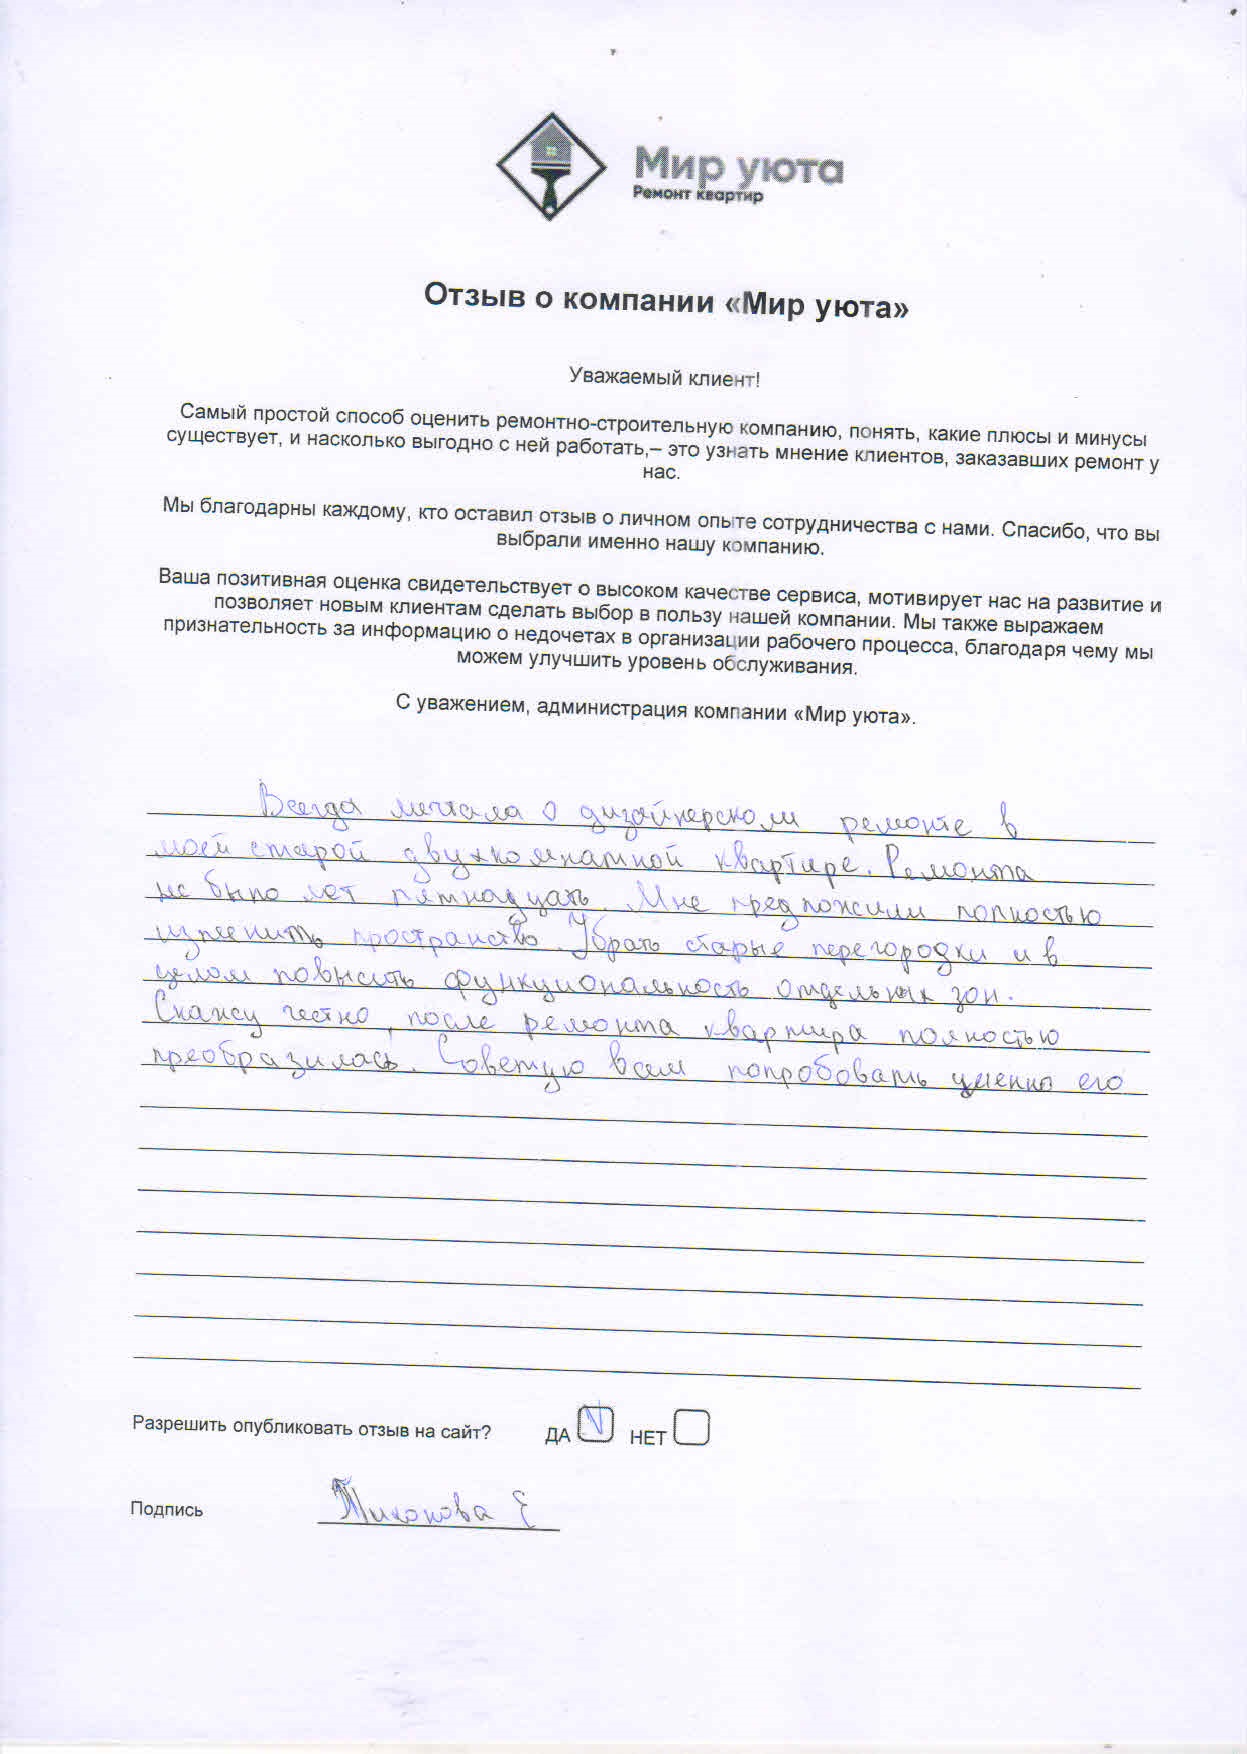 Мир уюта
Ремонт квартир
Отзыв о компании «Мир уюта»
Уважаемый клиент!
Самый простой способ оценить ремонтно-строительную компанию, понять, какие плюсы и минусы
существует, и насколько выгодно с ней работать,– это узнать мнение клиентов, заказавших ремонт у
нас.
Мы благодарны каждому, кто оставил отзыв о личном опыте сотрудничества с нами. Спасибо, что вы
выбрали именно нашу компанию.
Ваша позитивная оценка свидетельствует о высоком качестве сервиса, мотивирует нас на развитие и
позволяет новым клиентам сделать выбор в пользу нашей компании. Мы также выражаем
признательность за информацию о недочетах в организации рабочего процесса, благодаря чему мы
можем улучшить уровень обслуживания.
С уважением, администрация компании «Мир уюта».
Всегда мечтала о дизайнерском ремонте в
моей старой двухкомнатной квартире. Ремонта
не было лет пятнадцать. Мне предложили полностью
изменить пространство. Убрать старые перегородки и в
целом повысить функциональность отдельных зон.
Скажу честно, после ремонта квартира полностью
преобразилась. Советую всем попробовать именно его
Разрешить опубликовать отзыв на сайт? ДА НЕТ
Подпись Тихонова Е